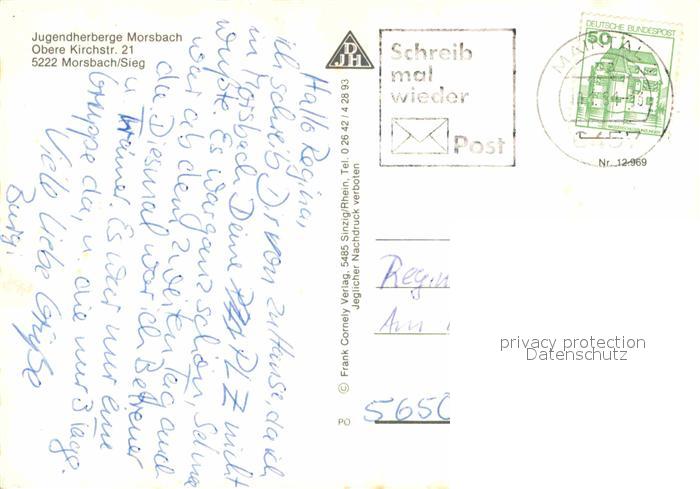 Jugendherberge Morsbach
Obere Kirchstr. 21
5222 Morsbach/Sieg
Hallo Regina,
ich schreib Dir von zu Hause, da ich
in Morsbach Deine PLZ nicht
wußte. Es war ganz schön, Selma
war ab dem zweiten Tag auch
da. Diesmal war ich Betreuer
u. Es war nur eine
Gruppe da, u. die nur 3 Tage.
Viele liebe Grüße
Burgi
DJH
© Frank Cornely Verlag, 5485 Sinzig/Rhein, Tel. 0 26 42 / 4 28 93
Jeglicher Nachdruck verboten
PO
Schreib
mal
wieder
Post
DEUTSCHE BUNDESPOST
50
MAINTAL
Nr. 12.969
Regin
Am
5650
privacy protection
Datenschutz